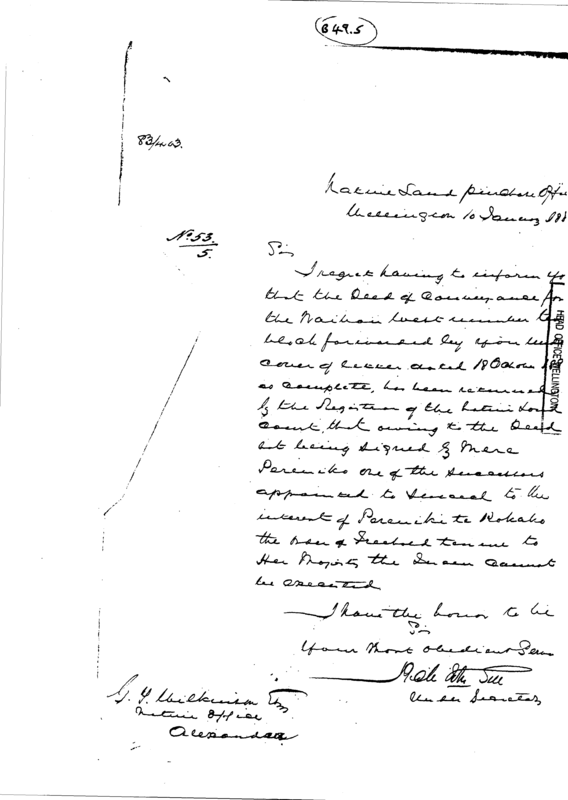 B 49.5
83/4 03.
Native Land purchase Off
Wellington 10 January 188
No 53.
5.
Sir
I regret having to inform yo
that the Deed of Conveyance for
the Waihou West number
block forwarded by you under
cover of letter dated 18 October
as complete, has been returned
by the Registrar of the Native Land
Court, that owing to the Deed
not being signed by Mere
Pereniko one of the successors
appointed to succeed to the
interest of Pereniki te Kokako
the Order of Freehold tenure to
Her Majesty the Queen Cannot
be executed
I have the honor to be
Sir
Your Most Obedient Serv
Under Secretary
G. T. Wilkinson Esq
Native Office
Alexandra
HEAD OFFICE WELLINGTON